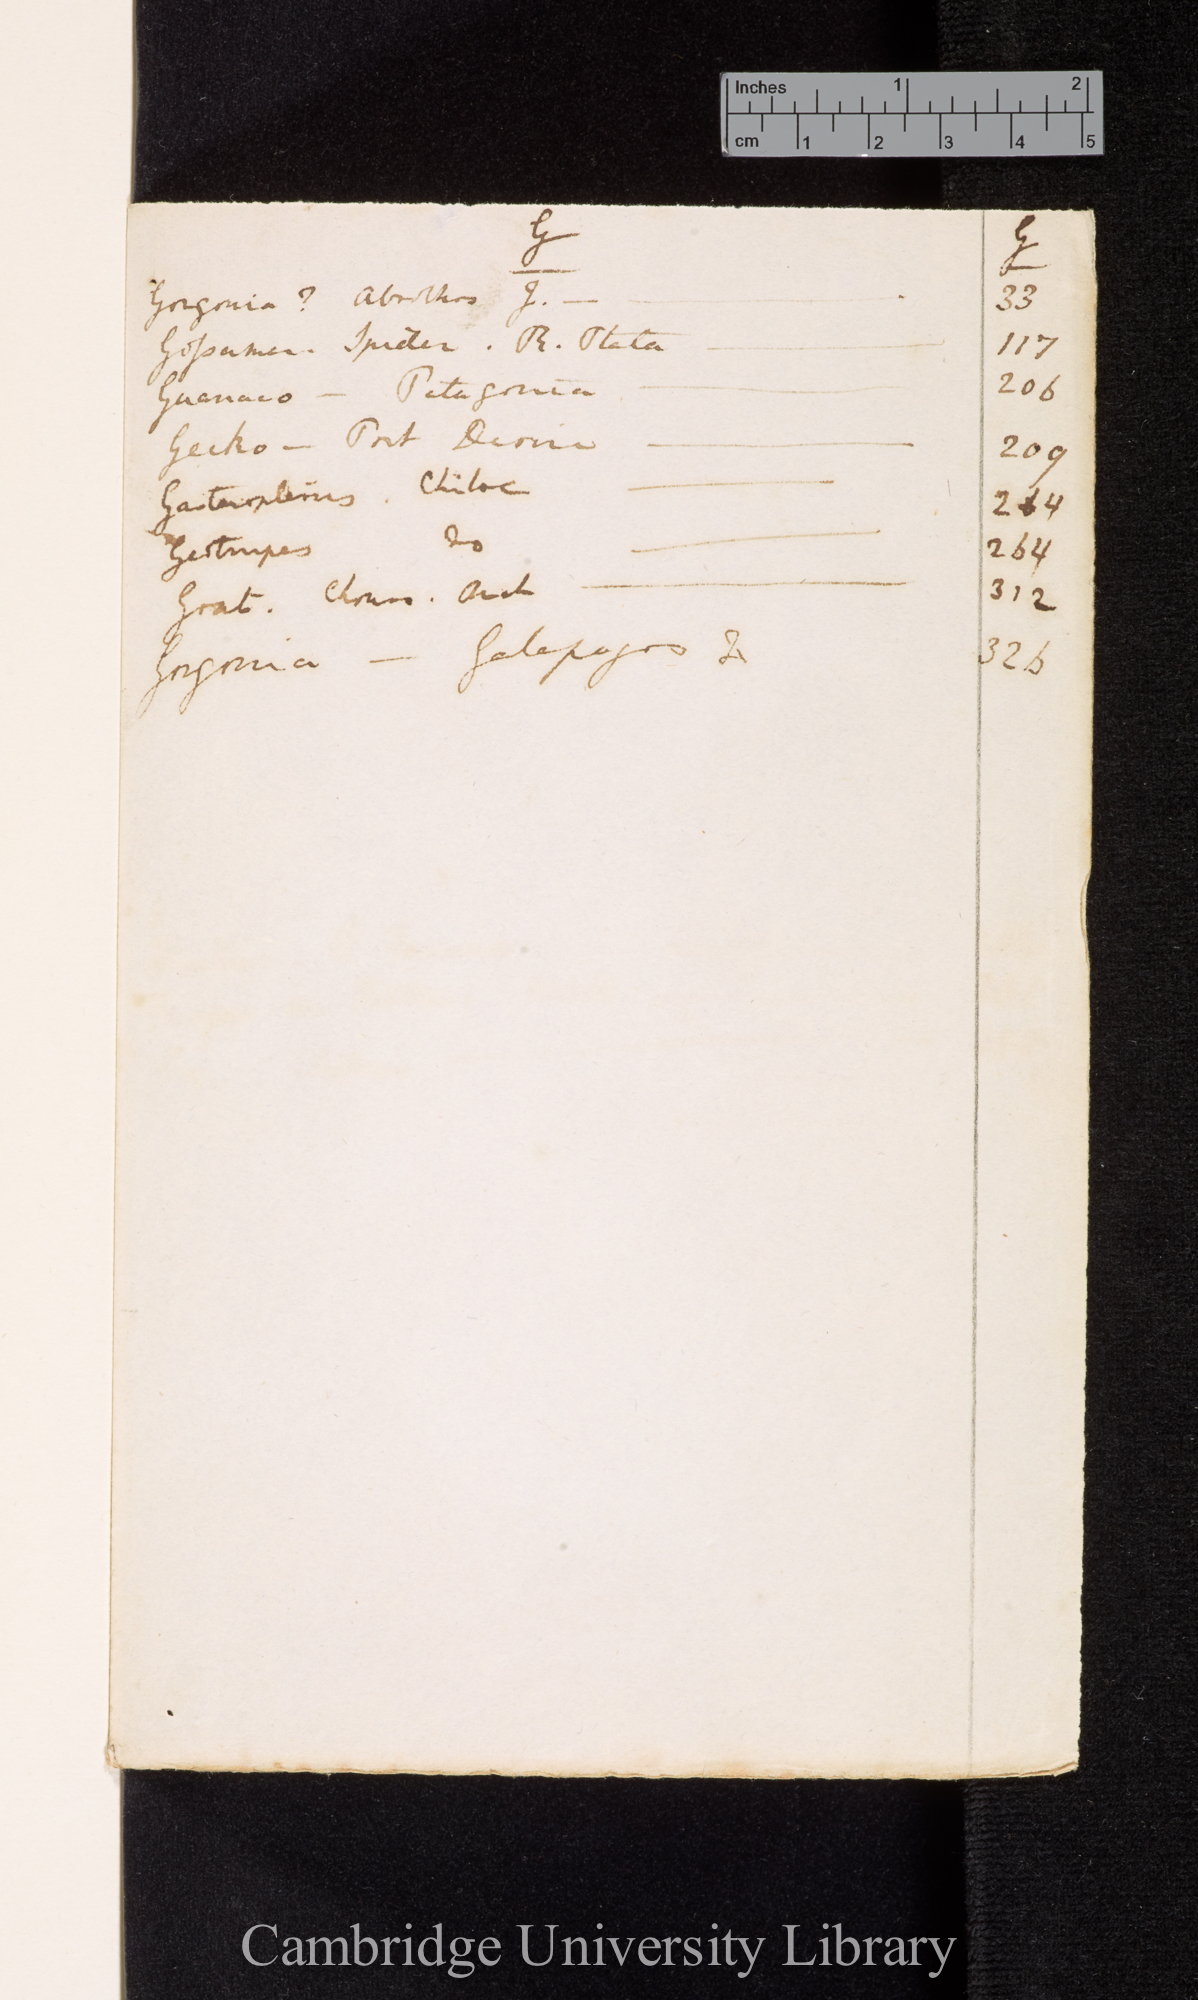 Inches 1 2
cm 1 2 3 4 5
G G
Gorgonia ? Abrolhos I. — 33
Gossamer. Spider. R. Plata — 117
Guanaco — Patagonia — 206
Gecko — Port Desire — 209
Chiloe — 264
Geotrupes Do — 264
Goat. Chonos. Arch — 312
Gorgonia — Galapagos 326
Cambridge University Library